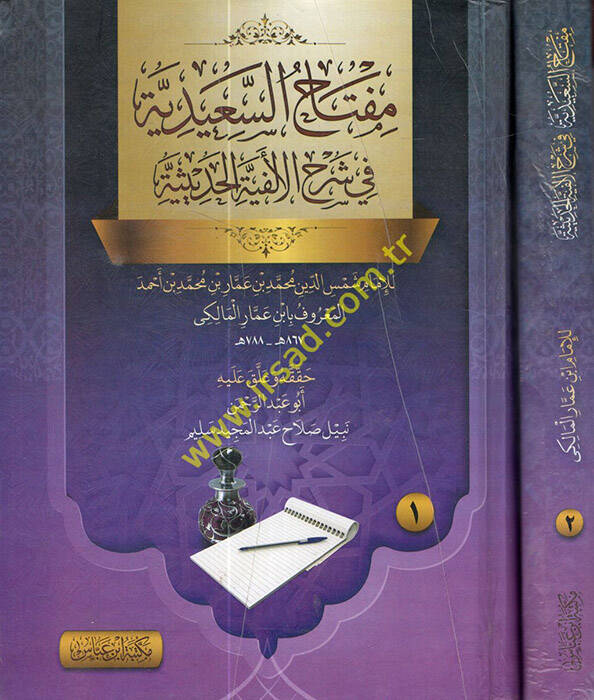 مِفْتَاحُ السَّعِيدِيَّة
فِي شَرْحِ الأَلْفِيَّةِ الحَدِيثِيَّةِ
للإمام شَمْسِ الدّين مُحمّد بن عَمّار بن مُحمّد بن أَحمَدَ
المَعْرُوفِ بِابْنِ عَمَّارِ المَالِكِى
٨٦٧هـ - ٧٨٨هـ
حَقّقَهُ وَعَلّقَ عَلَيهِ
أَبُو عَبْد الرَّحْمَن
نَبِيْل صَلَاح عَبْد المَجِيْد سَلِيم
١
مكتبة ابن عباس
www.irsad.com.tr
مفتاح السعيدية في شرح الألفية الحديثية
للإمام ابن عمّار المالكى
٢
مكتبة ابن عباس